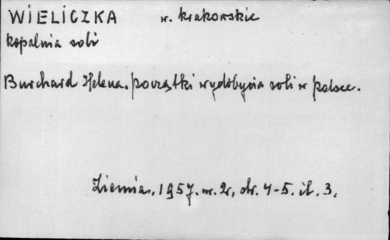 WIELICZKA w. krakowskie
kopalnia soli
Burchard Helena. początki wydobycia soli w polsce.
Ziemia. 1957. nr. 2, str. 4-5. il. 3.